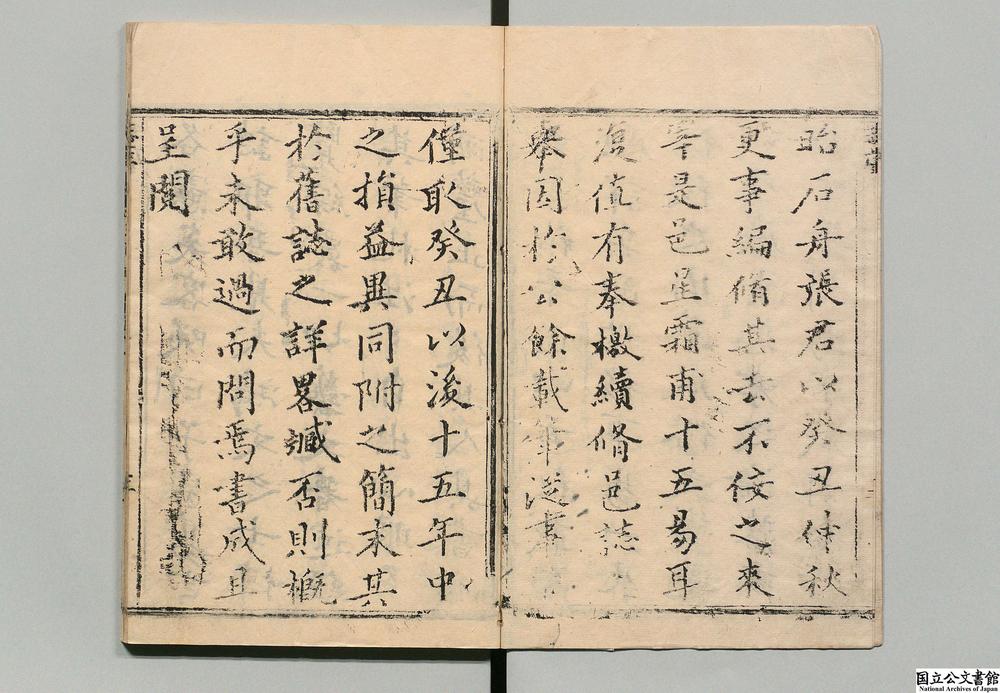 昭石舟張君以癸丑仲秋
更事編脩其去不佞之來
宰是邑星霜甫十五易耳
復值有奉檄續脩邑誌
舉因於公餘載筆從事
僅取癸丑以後十五年中
之損益異同附之簡末其
於舊誌之詳畧臧否則概
乎未敢過而問焉書成且
呈閱
国立公文書館
National Archives of Japan